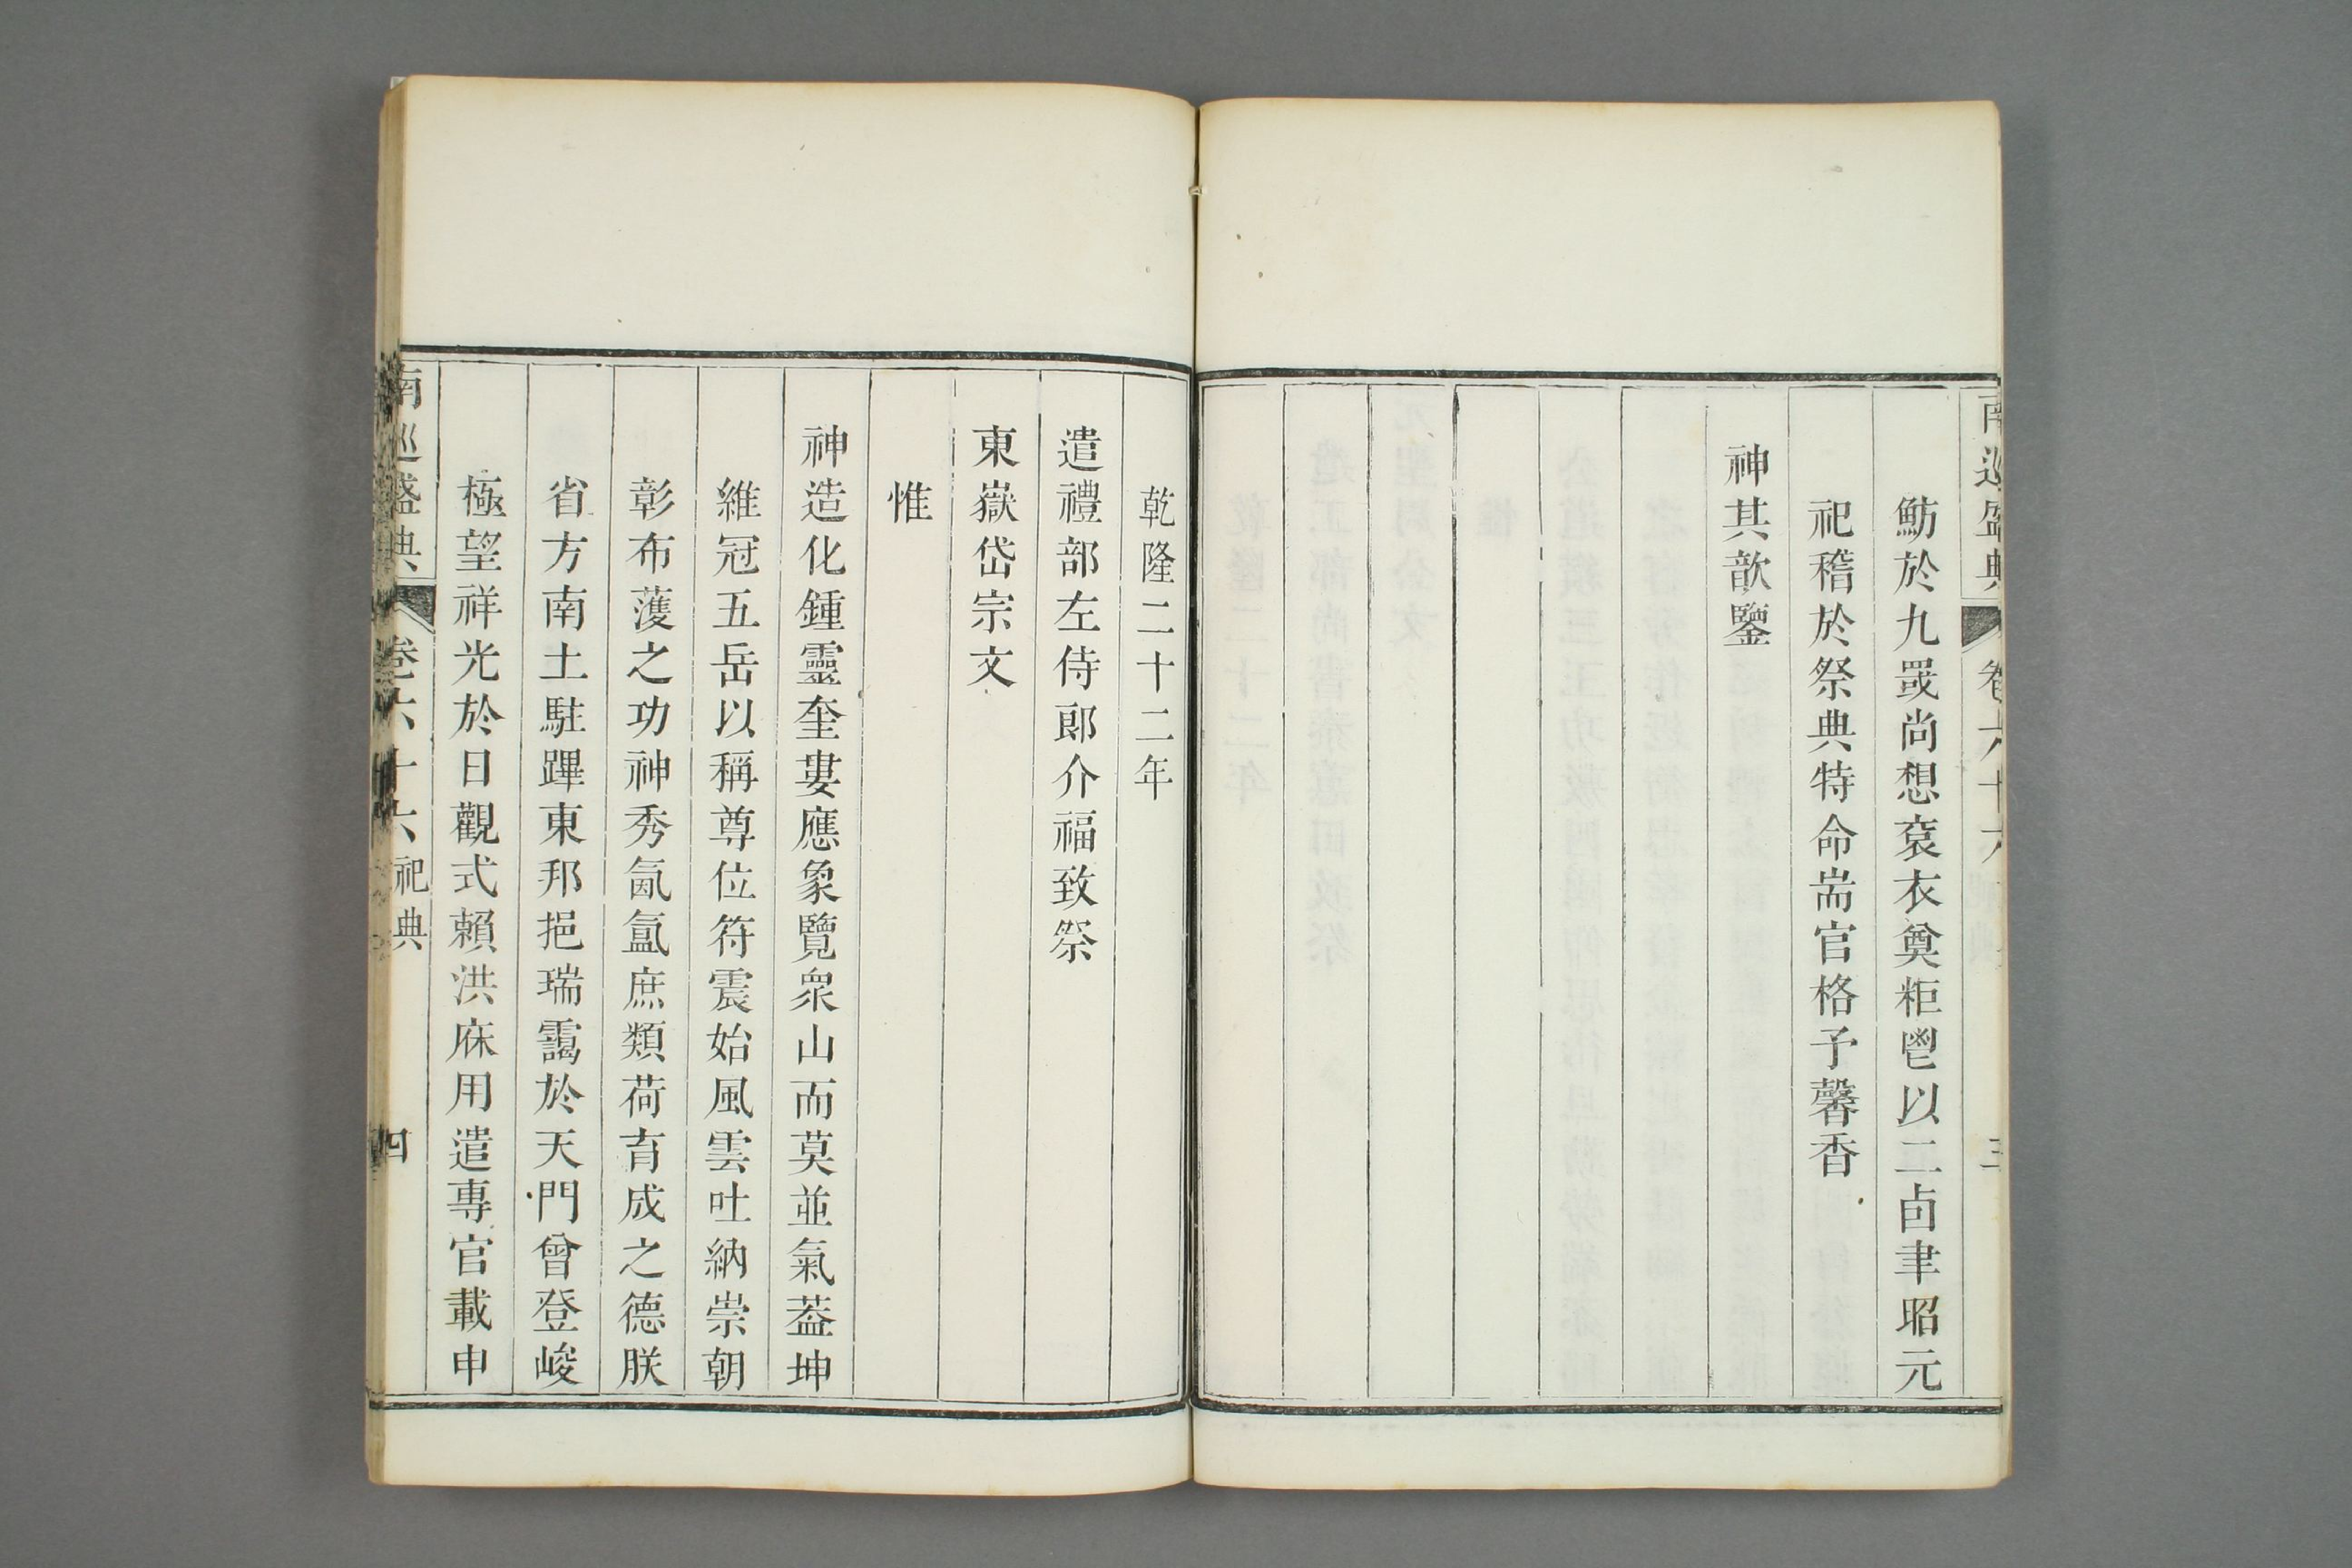 魴於九罭尚想袞衣奠秬鬯以二卣聿昭元
祀稽於祭典特命耑官格予馨香
神其歆鑒
南巡盛典
卷六十六
三
乾隆二十二年
遣禮部左侍郎介福致祭
東嶽岱宗文
惟
神造化鍾靈奎婁應象覽衆山而莫並氣葢坤
維冠五岳以稱尊位符震始風雲吐納崇朝
彰布濩之功神秀氤氳庶類荷育成之德朕
省方南土駐蹕東邦挹瑞靄於天門曾登峻
極望祥光於日觀式賴洪庥用遣專官載申
南巡盛典
卷六十六祀典
四